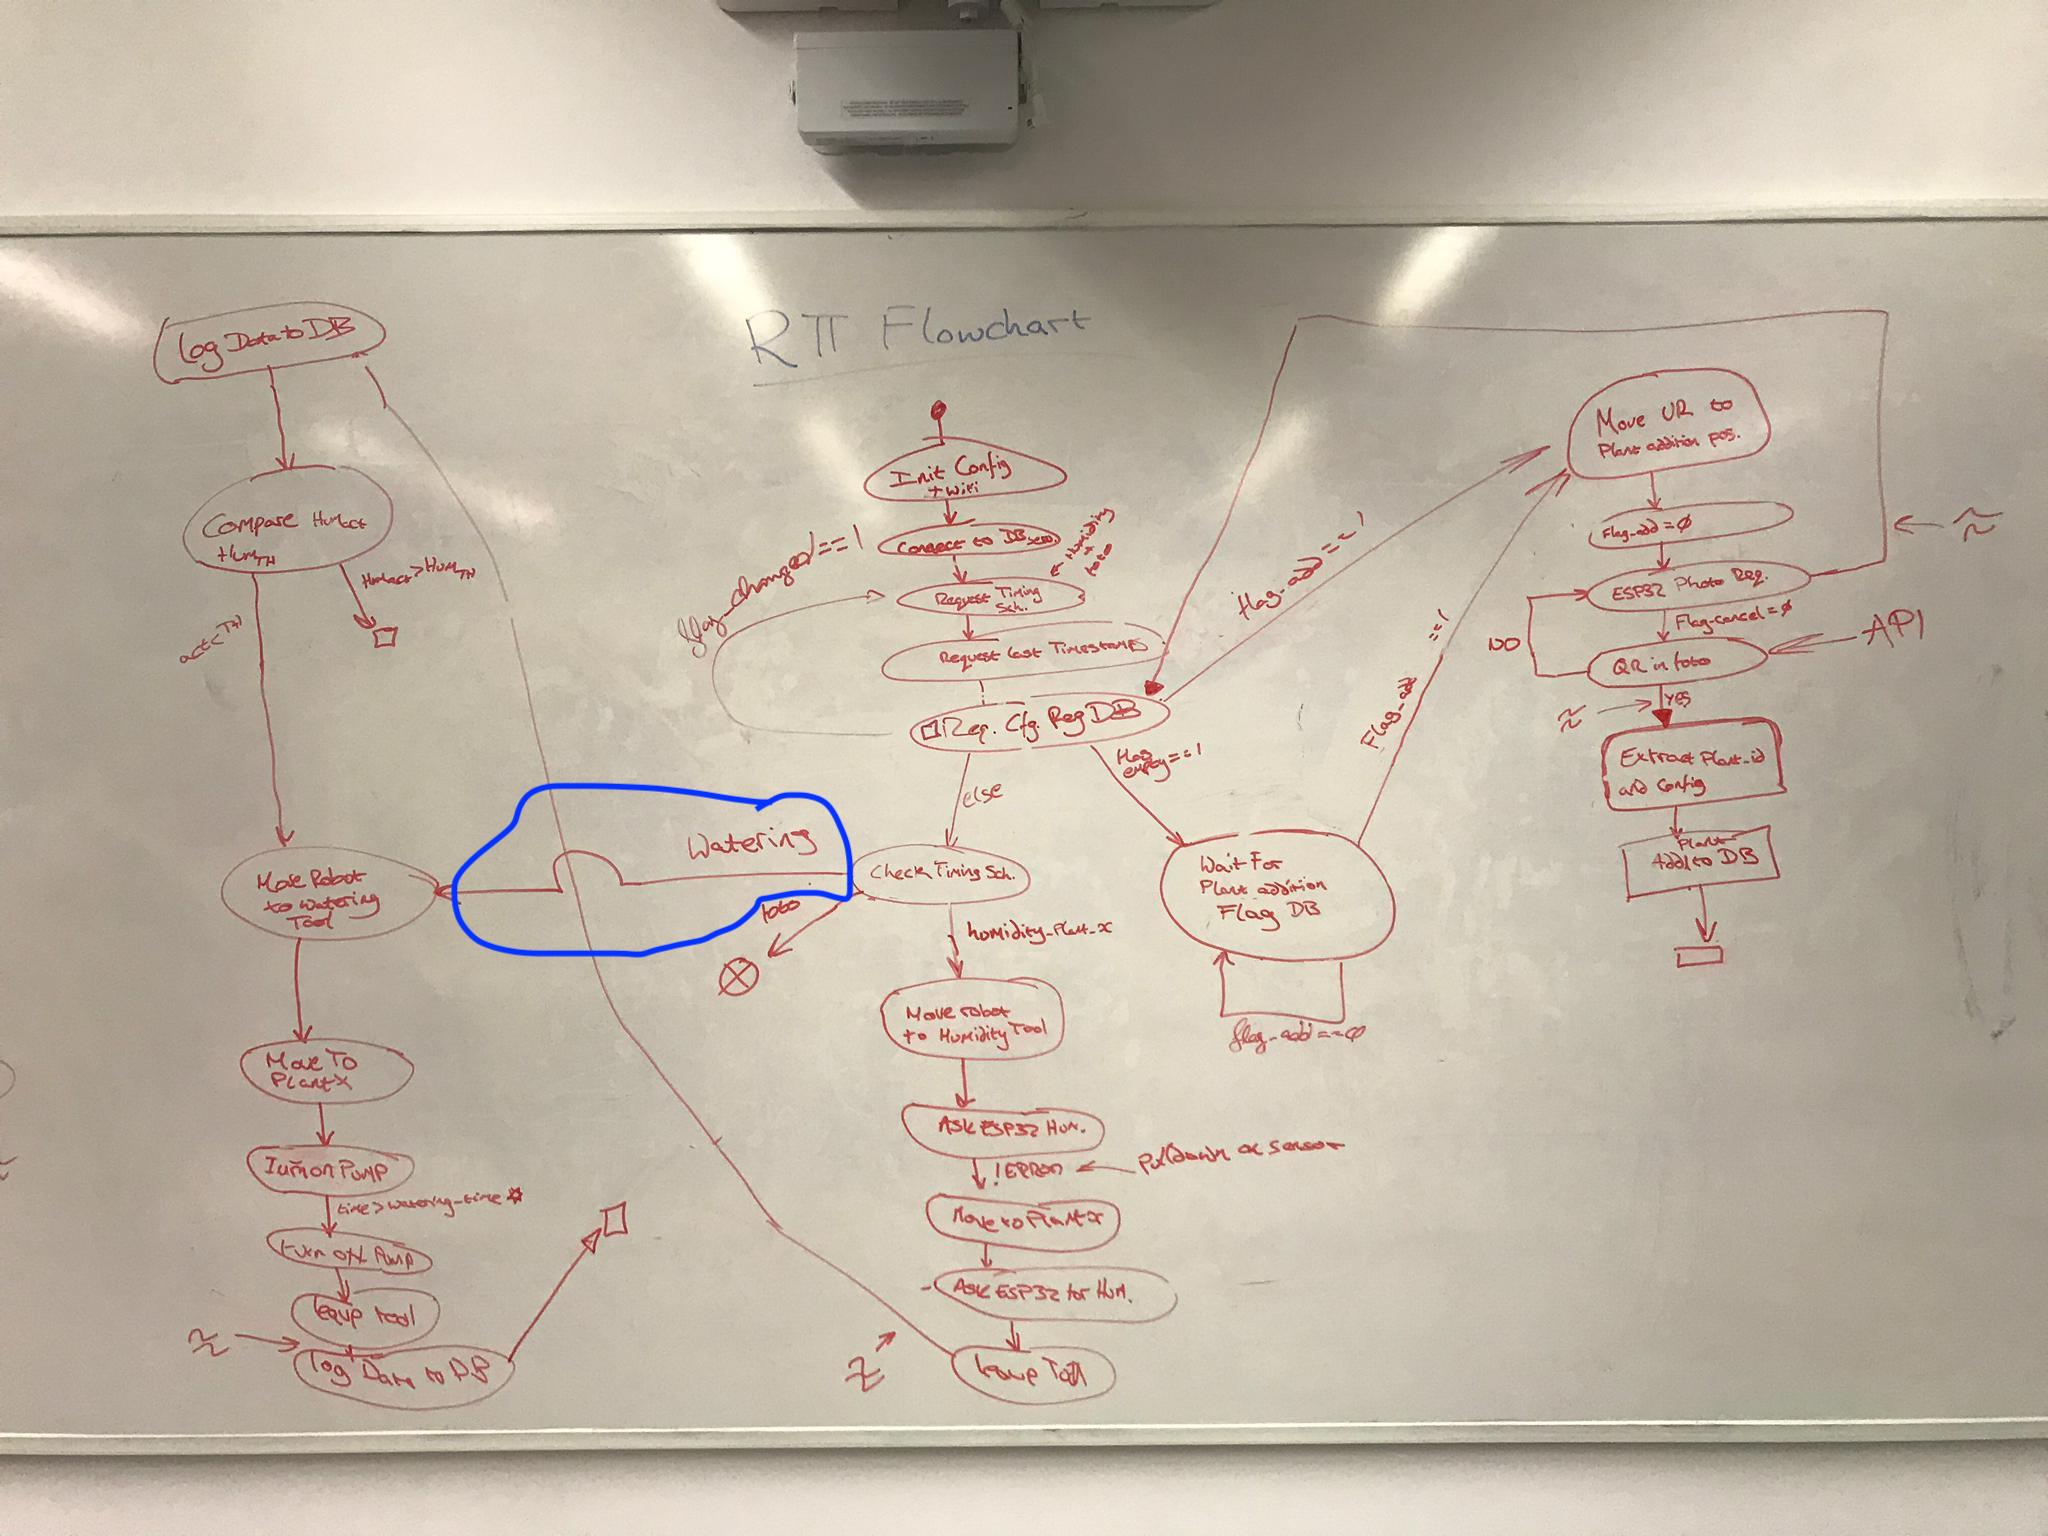 RΠ Flowchart
Log Data to DB
Compare Humact
+Hum TH
Humact>Hum TH
act<TH
Move Robot
to Watering
Tool
Move To
Plant X
Turn on Pump
time>watering-time *
turn off Pump
Log Data to DB
Init Config
+ Wifi
Connect to DB
Humidity
+
foto
Request Timing
Sch.
flag_changed==1
Request Last Timestamps
Req. Cfg. Reg DB
else
Flag
empty==1
flag_add==1
Watering
foto
Check Timing Sch.
humidity_Plant_x
Move robot
to Humidity Tool
ASK ESP32 Hum.
!ERROR
Pulldown at sensor
Move to Plant x
ASK ESP32 for Hum.
Wait For
Plant addition
Flag DB
flag_add==0
Flag_add ==1
Move UR to
Plant addition pos.
Flag_add=0
ESP32 Photo Req.
Flag-cancel=0
NO
QR in foto
API
YES
Extract Plant_id
and Config
Plant
Add to DB